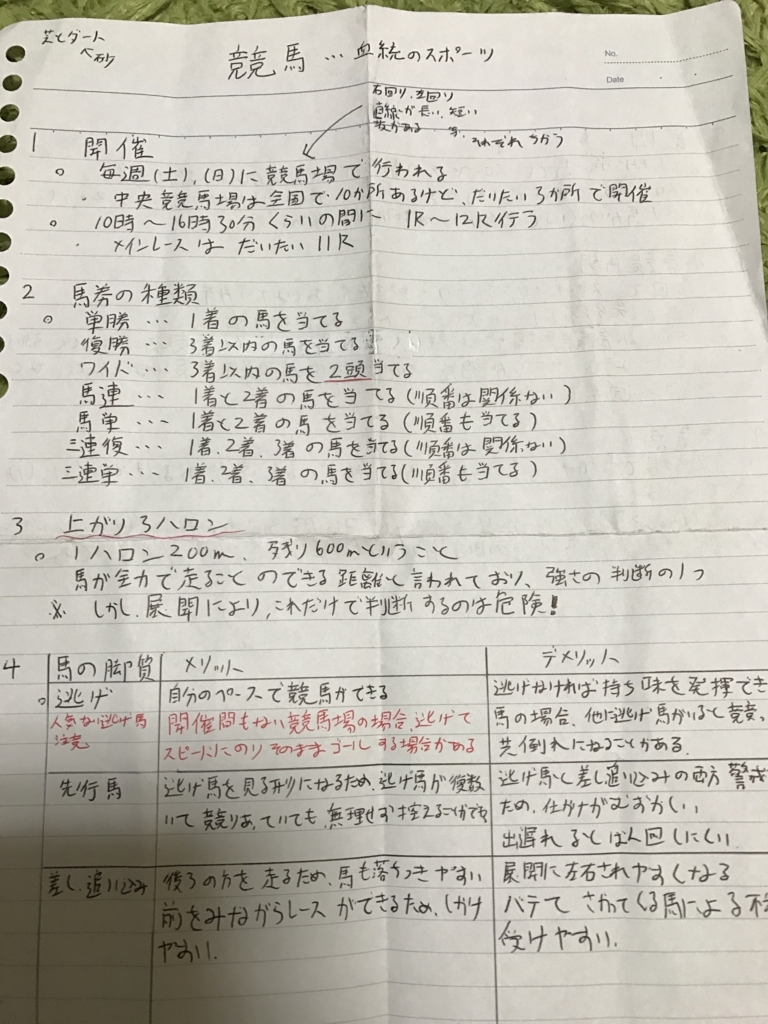 芝とダート
砂
競馬…血統のスポーツ
No.
Date
右回り、左回り
直線が長い、短い
坂がある 等、それぞれちがう
1 開催
毎週(土),(日)に競馬場で行われる
・中央競馬場は全国で10か所あるけど、だいたい3か所で開催
10時〜16時30分くらいの間に 1R〜12R行う
・メインレースは だいたい11R
2 馬券の種類
単勝… 1着の馬を当てる
復勝… 3着以内の馬を当てる
ワイド… 3着以内の馬を2頭当てる
馬連… 1着と2着の馬を当てる(順番は関係ない)
馬単… 1着と2着の馬を当てる(順番も当てる)
三連復… 1着、2着、3着の馬を当てる(順番は関係ない)
三連単… 1着、2着、3着の馬を当てる(順番も当てる)
3 上がり3ハロン
1ハロン200m、残り600mということ
馬が全力で走ることのできる距離と言われており、強さの判断の1つ
※ しかし、展開により、これだけで判断するのは危険!
4 馬の脚質 メリット デメリット
逃げ
人気ない逃げ馬
注意
自分のペースで競馬ができる
開催間もない競馬場の場合、逃げて
スピードにのりそのままゴールする場合がある
逃げなければ持ち味を発揮でき
馬の場合、他に逃げ馬がいると競
共倒れになることがある。
先行馬
逃げ馬を見る形になるため、逃げ馬が復数
いて競りあっていても、無理せず控えることができ
逃げ馬と差し追い込みの両方警戒
ため、仕かけがむずかしい
出遅れるとばん回しにくい
差し、追い込み
後ろの方を走るため、馬も落ちつきやすい
前をみながらレースができるため、しかけ
やすい。
展開に左右されやすくなる
バテて さがってくる馬による不
受けやすい。